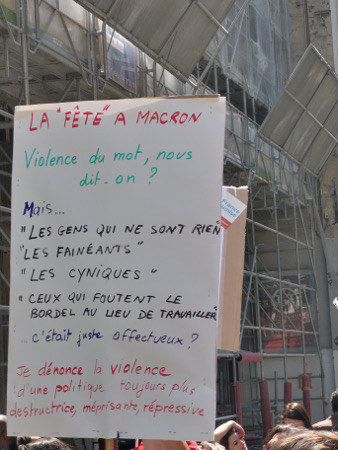 LA "FÊTE" A MACRON
Violence du mot, nous
dit-on ?
Mais...
"LES GENS QUI NE SONT RIEN
"LES FAINÉANTS"
"LES CYNIQUES"
"CEUX QUI FOUTENT LE
BORDEL AU LIEU DE TRAVAILLER
... c'était juste affectueux ?
Je dénonce la violence
d'une politique toujours plus
destructrice, méprisante, répressive
France